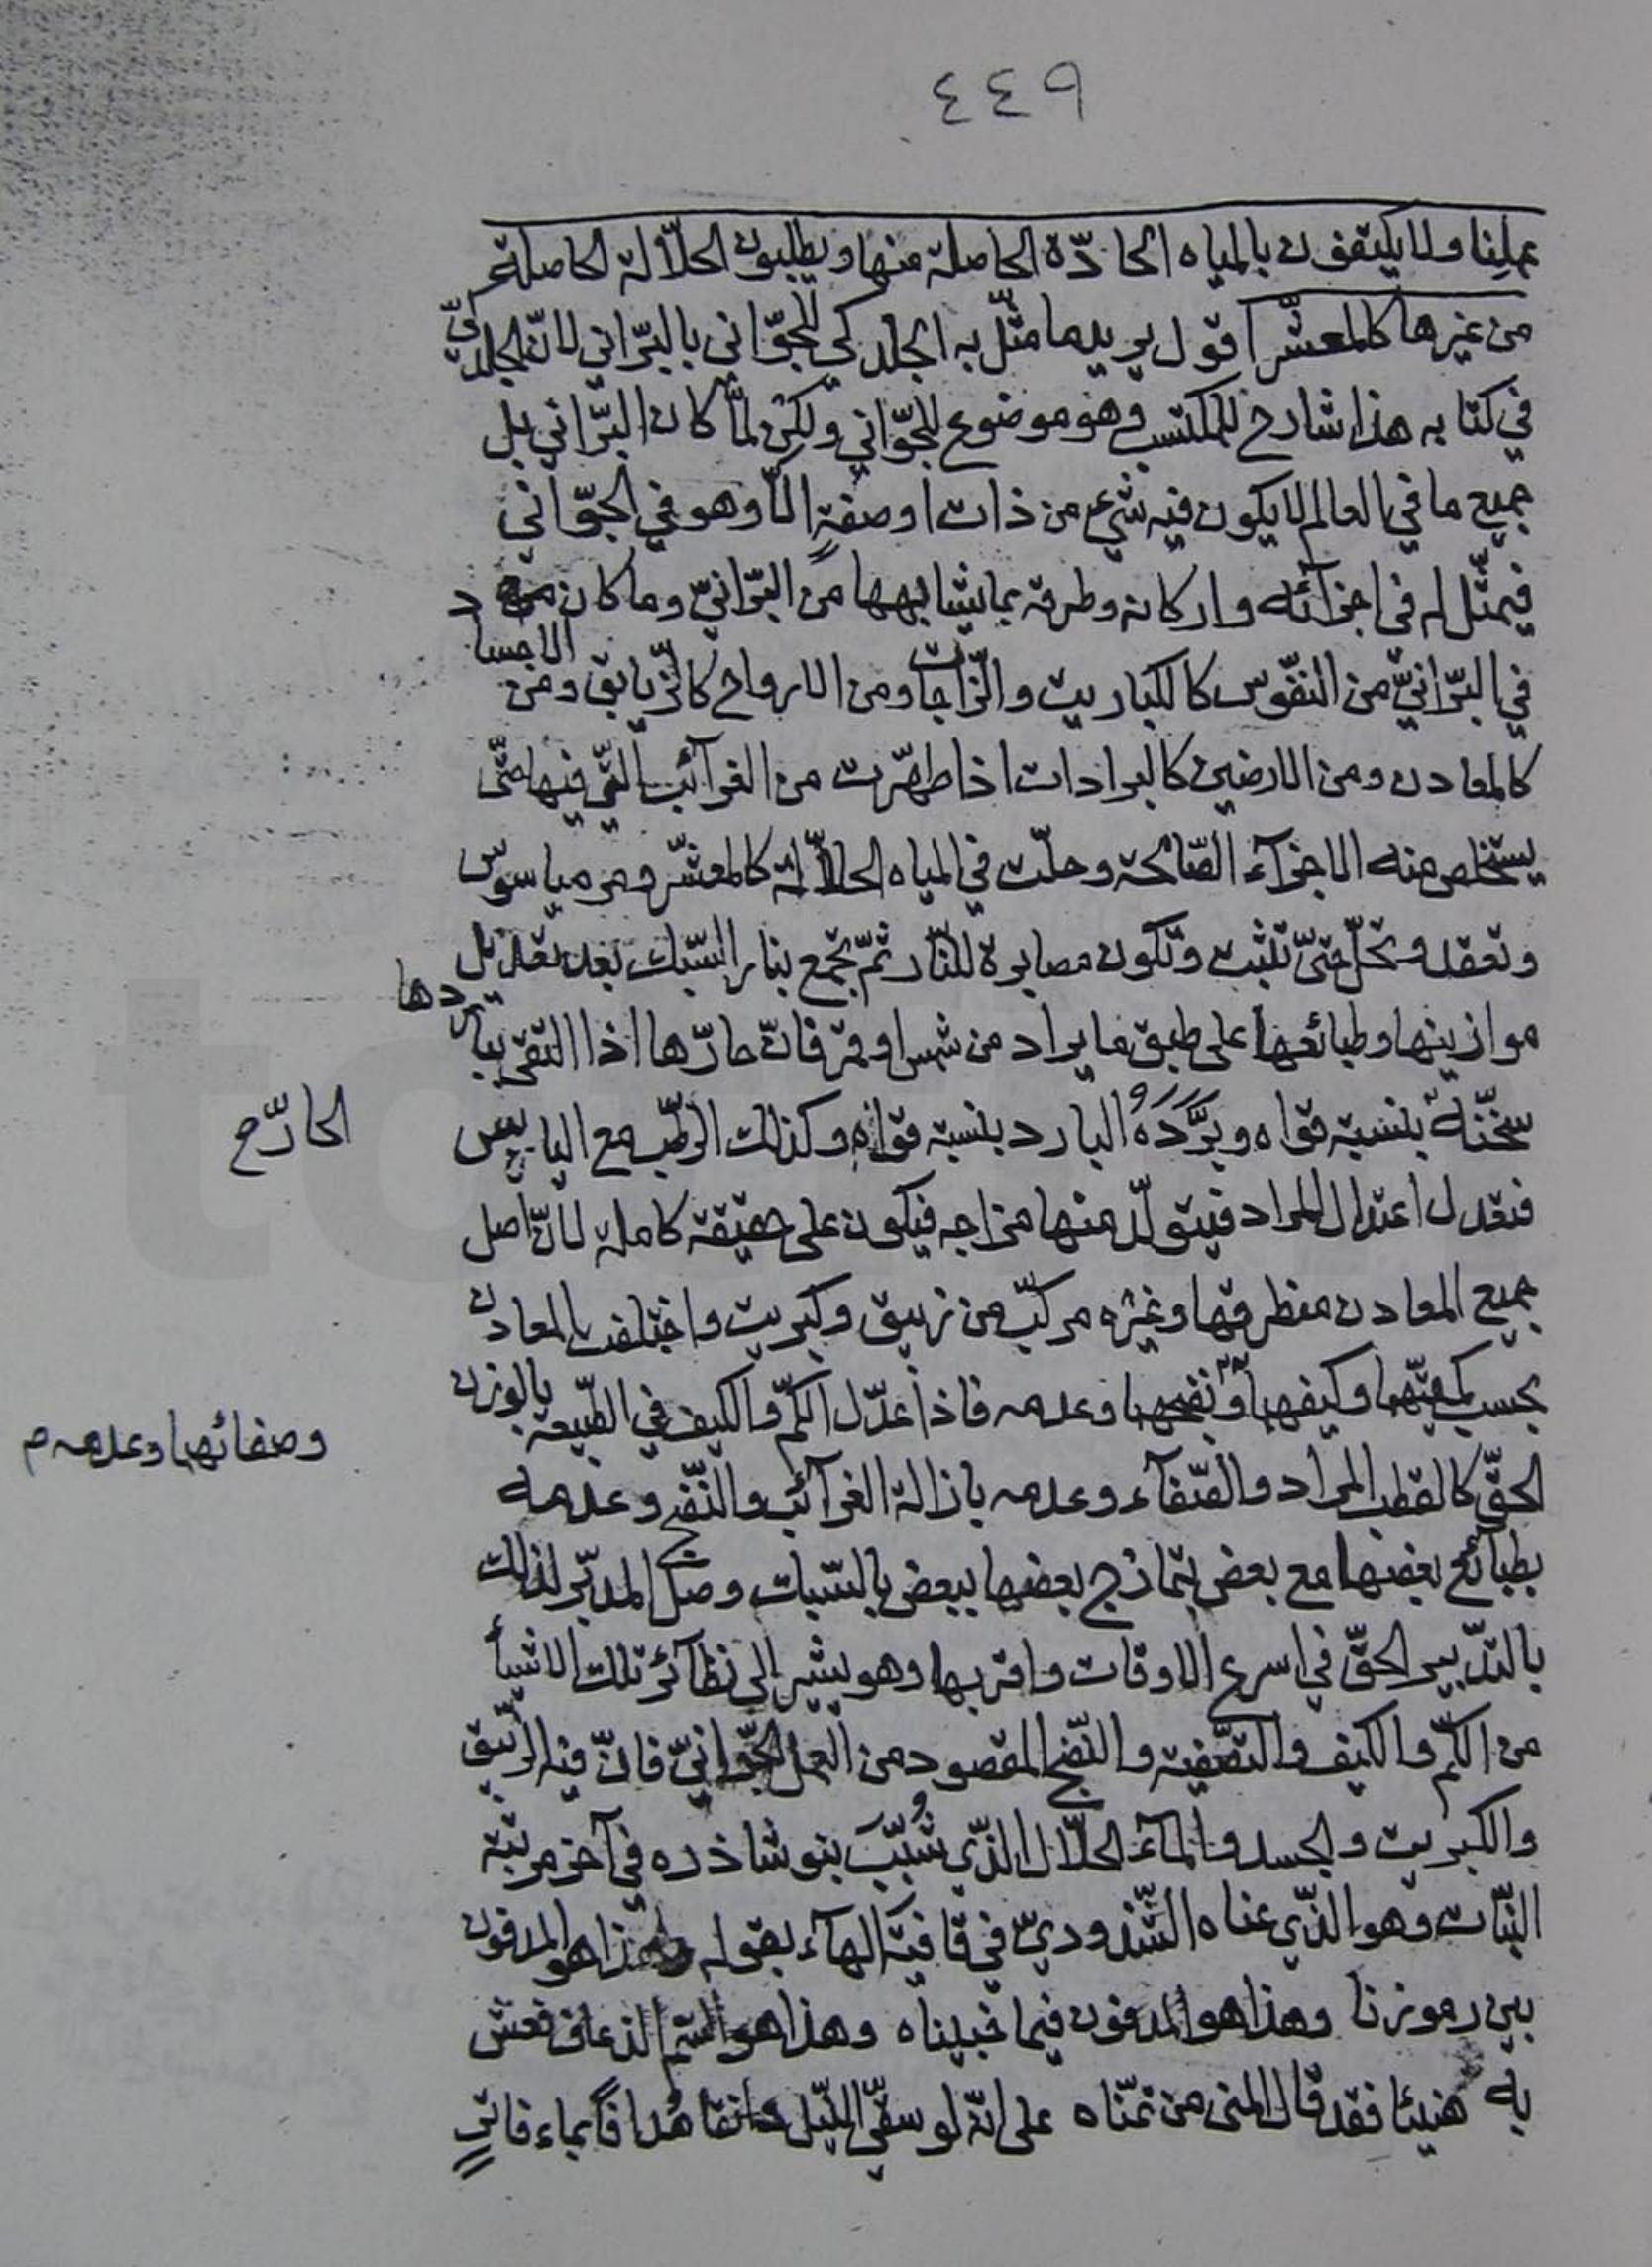 ٤٤٩
عملنا ولا يكتفون بالمياه الحادّة الحاصلة منها ويطلبون الحلّالة الحاصلة
من غيرها كالمعشّر اقول يريد ما مثّل به الجلدكي للجوّاني بالبرّاني لانّ الجلدكيّ
في كتابه هذا شارح للمكتسب وهو موضوع للجوّاني ولكن لمّا كان البرّاني بل
جميع ما في العالم لا يكون فيه شيء من ذات او صفةٍ الّا وهو في الجوّاني
فيمثّل له في اجزآئه واركانه وطرقه بما يشابهها من البرّانيّ وما كان
في البرّانيّ من النفوس كالكباريت والزّاجات ومن الارواح كالزّيابق ومن الاجساد
كالمعادن ومن الارضين كالبرادات اذا طهّرت من الغرآئب الّتي فيها حتّى
يستخلص منه الاجزآء الصّالحة وحلّت في المياه الحلّالة كالمعشّر ومرمياسوس
وتعقد وتحلّ حتّى تثبت وتكون مصابرة للنّار ثمّ تجمع بنار السّبك بعد تعديل
موازينها وطبائعها على طبق ما يراد من شمس او قمر فانّ حارّها اذا التقى بباردها
سخّنه بنسبة قواه وبَرَّدَهُ البارد بنسبة قواه وكذلك الرّطب مع اليابس
الحارّ ح
فتعدل اعتدال المراد فيتولّد منها مزاجه فيكون على حقيقة كاملة لانّ اصل
جميع المعادن منطرقها وغيره مركّب من زيبق وكبريت واختلفت المعادن
بحسب كميّتها وكيفها ونضجها وعدمه فاذا عدّل الكمّ والكيف في الطّبيعة بالوزن
وصفائها وعدمه م
الحقّ كالقطب المراد والصّفآء وعدمه بازالة الغرآئب والنّضج وعدمه
بطبآئع بعضها مع بعض يتمازج بعضها ببعض بالسّبك وصل المدبّر لذلك
بالتّدبير الحقّ في اسرع الاوقات واقربها وهو يشير الى نظآئر تلك الاشيآء
من الكمّ والكيف والتّصفية والنّضج المقصود من العمل الجوّانيّ فانّ فيه الزّيبق
والكبريت والجسد والمآء الحلّال الذّي شُبِّبَ بنوشاذره في آخر مرتبة
النّبات وهو الذّي عناه الشّذوديّ في قافية الهآء بقوله وهذا هو المدفون
بين رموزنا وهذا هو المدفون فيما خبيناه وهذا هو السّم الذعاف فعش
به هنيئا فقد قال المنى من تمنّاه على انّه لو سقي اللّيل